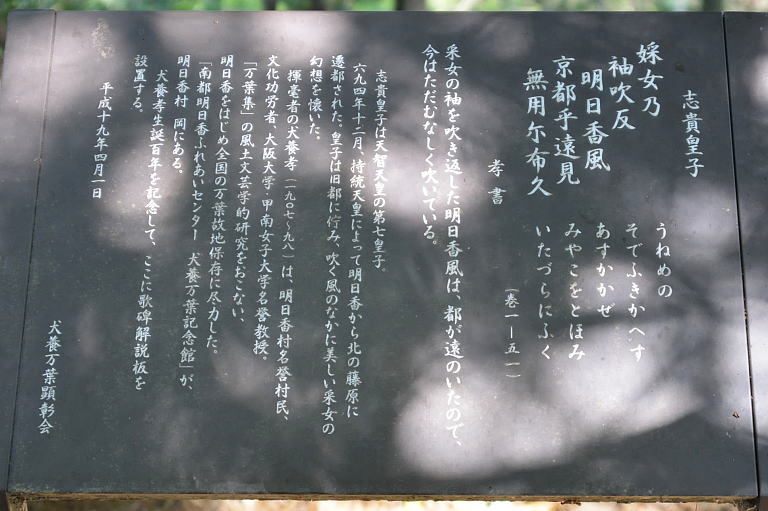 志貴皇子
婇女乃
袖吹反
明日香風
京都乎遠見
無用尓布久
孝書
うねめの
そでふきかへす
あすかかぜ
みやこをとほみ
いたづらにふく
(巻一―五一)
采女の袖を吹き返した明日香風は、都が遠のいたので、
今はただむなしく吹いている。
志貴皇子は天智天皇の第七皇子。
六九四年十二月、持統天皇によって明日香から北の藤原に
遷都された。皇子は旧都に佇み、吹く風のなかに美しい采女の
幻想を懐いた。
揮毫者の犬養孝(一九〇七〜九八)は、明日香村名誉村民、
文化功労者、大阪大学・甲南女子大学名誉教授。
「万葉集」の風土文芸学的研究をおこない、
明日香をはじめ全国の万葉故地保存に尽力した。
「南都明日香ふれあいセンター 犬養万葉記念館」が、
明日香村 岡にある。
犬養孝生誕百年を記念して、ここに歌碑解説板を
設置する。
平成十九年四月一日
犬養万葉顕彰会